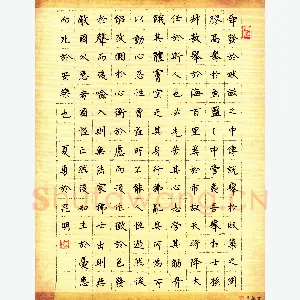 舜發於畎畝之中傅說舉於版築之間
膠鬲舉於魚鹽之中管夷吾舉於士孫
叔敖舉於海百里奚舉於市故天將降大
任於斯人也必先苦其心志勞其筋骨
餓其體膚空乏其身行拂亂其所為所
以動心忍性曾益其所不能人恆過然後
能改困於心衡於慮而後作徵於色發
於聲而後喻入則無法家拂士出則無
敵國外患者國恆亡然後知生於憂患
而死於安樂也 夏勇於昆明